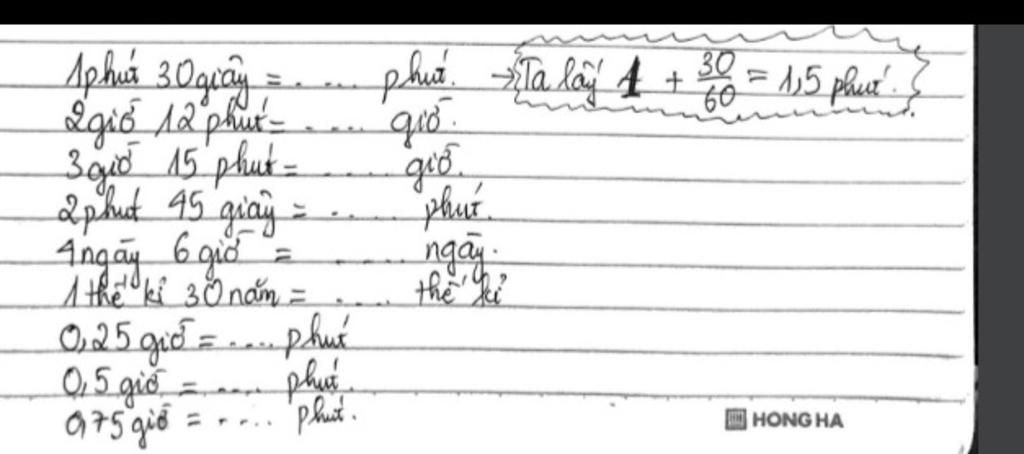 1 phút 30 giây = ..... phút. → Ta lấy 1 + 30/60 = 1,5 phút.
2 giờ 12 phút = ..... giờ.
3 giờ 15 phút = ..... giờ.
2 phút 45 giây = ..... phút.
4 ngày 6 giờ = ..... ngày.
1 thế kỉ 30 năm = ..... thế kỉ
0,25 giờ = .... phút
0,5 giờ = .... phút.
0,75 giờ = ..... phút.
HONG HA